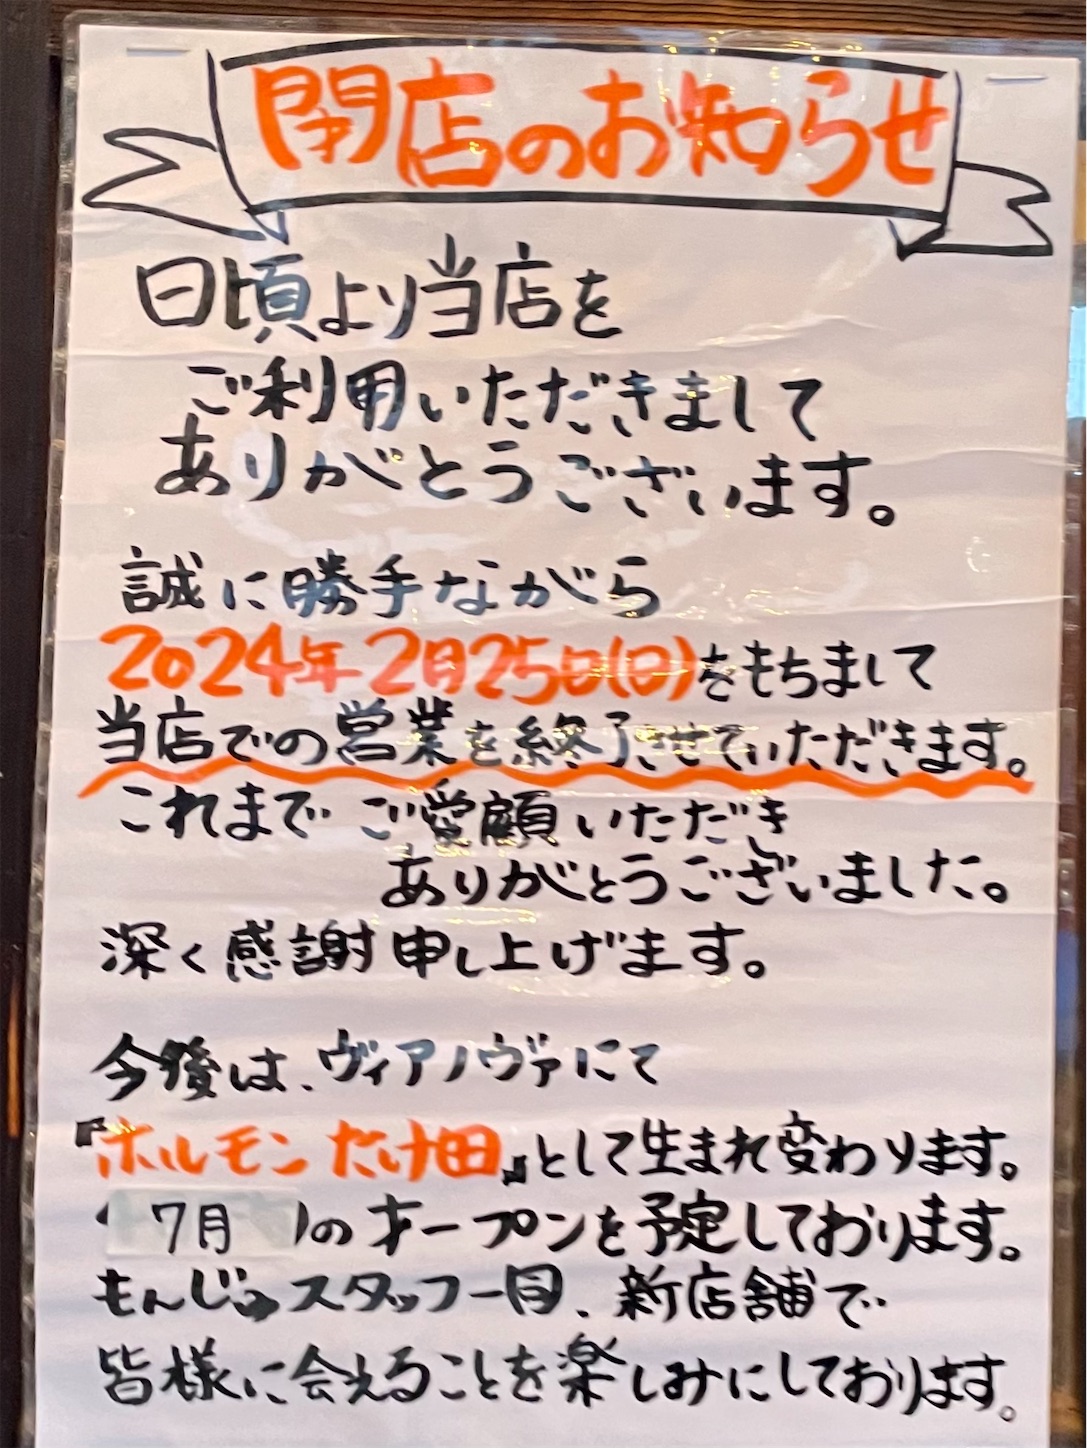 閉店のお知らせ
日頃より当店を
ご利用いただきまして
ありがとうございます。
誠に勝手ながら
2024年2月25日(日)をもちまして
当店での営業を終了させていただきます。
これまでご愛顧いただき
ありがとうございました。
深く感謝申し上げます。
今後は、ヴィアノヴァにて
『ホルモンたけ田』として生まれ変わります。
7月のオープンを予定しております。
もんじろうスタッフ一同、新店舗で
皆様に会えることを楽しみにしております。